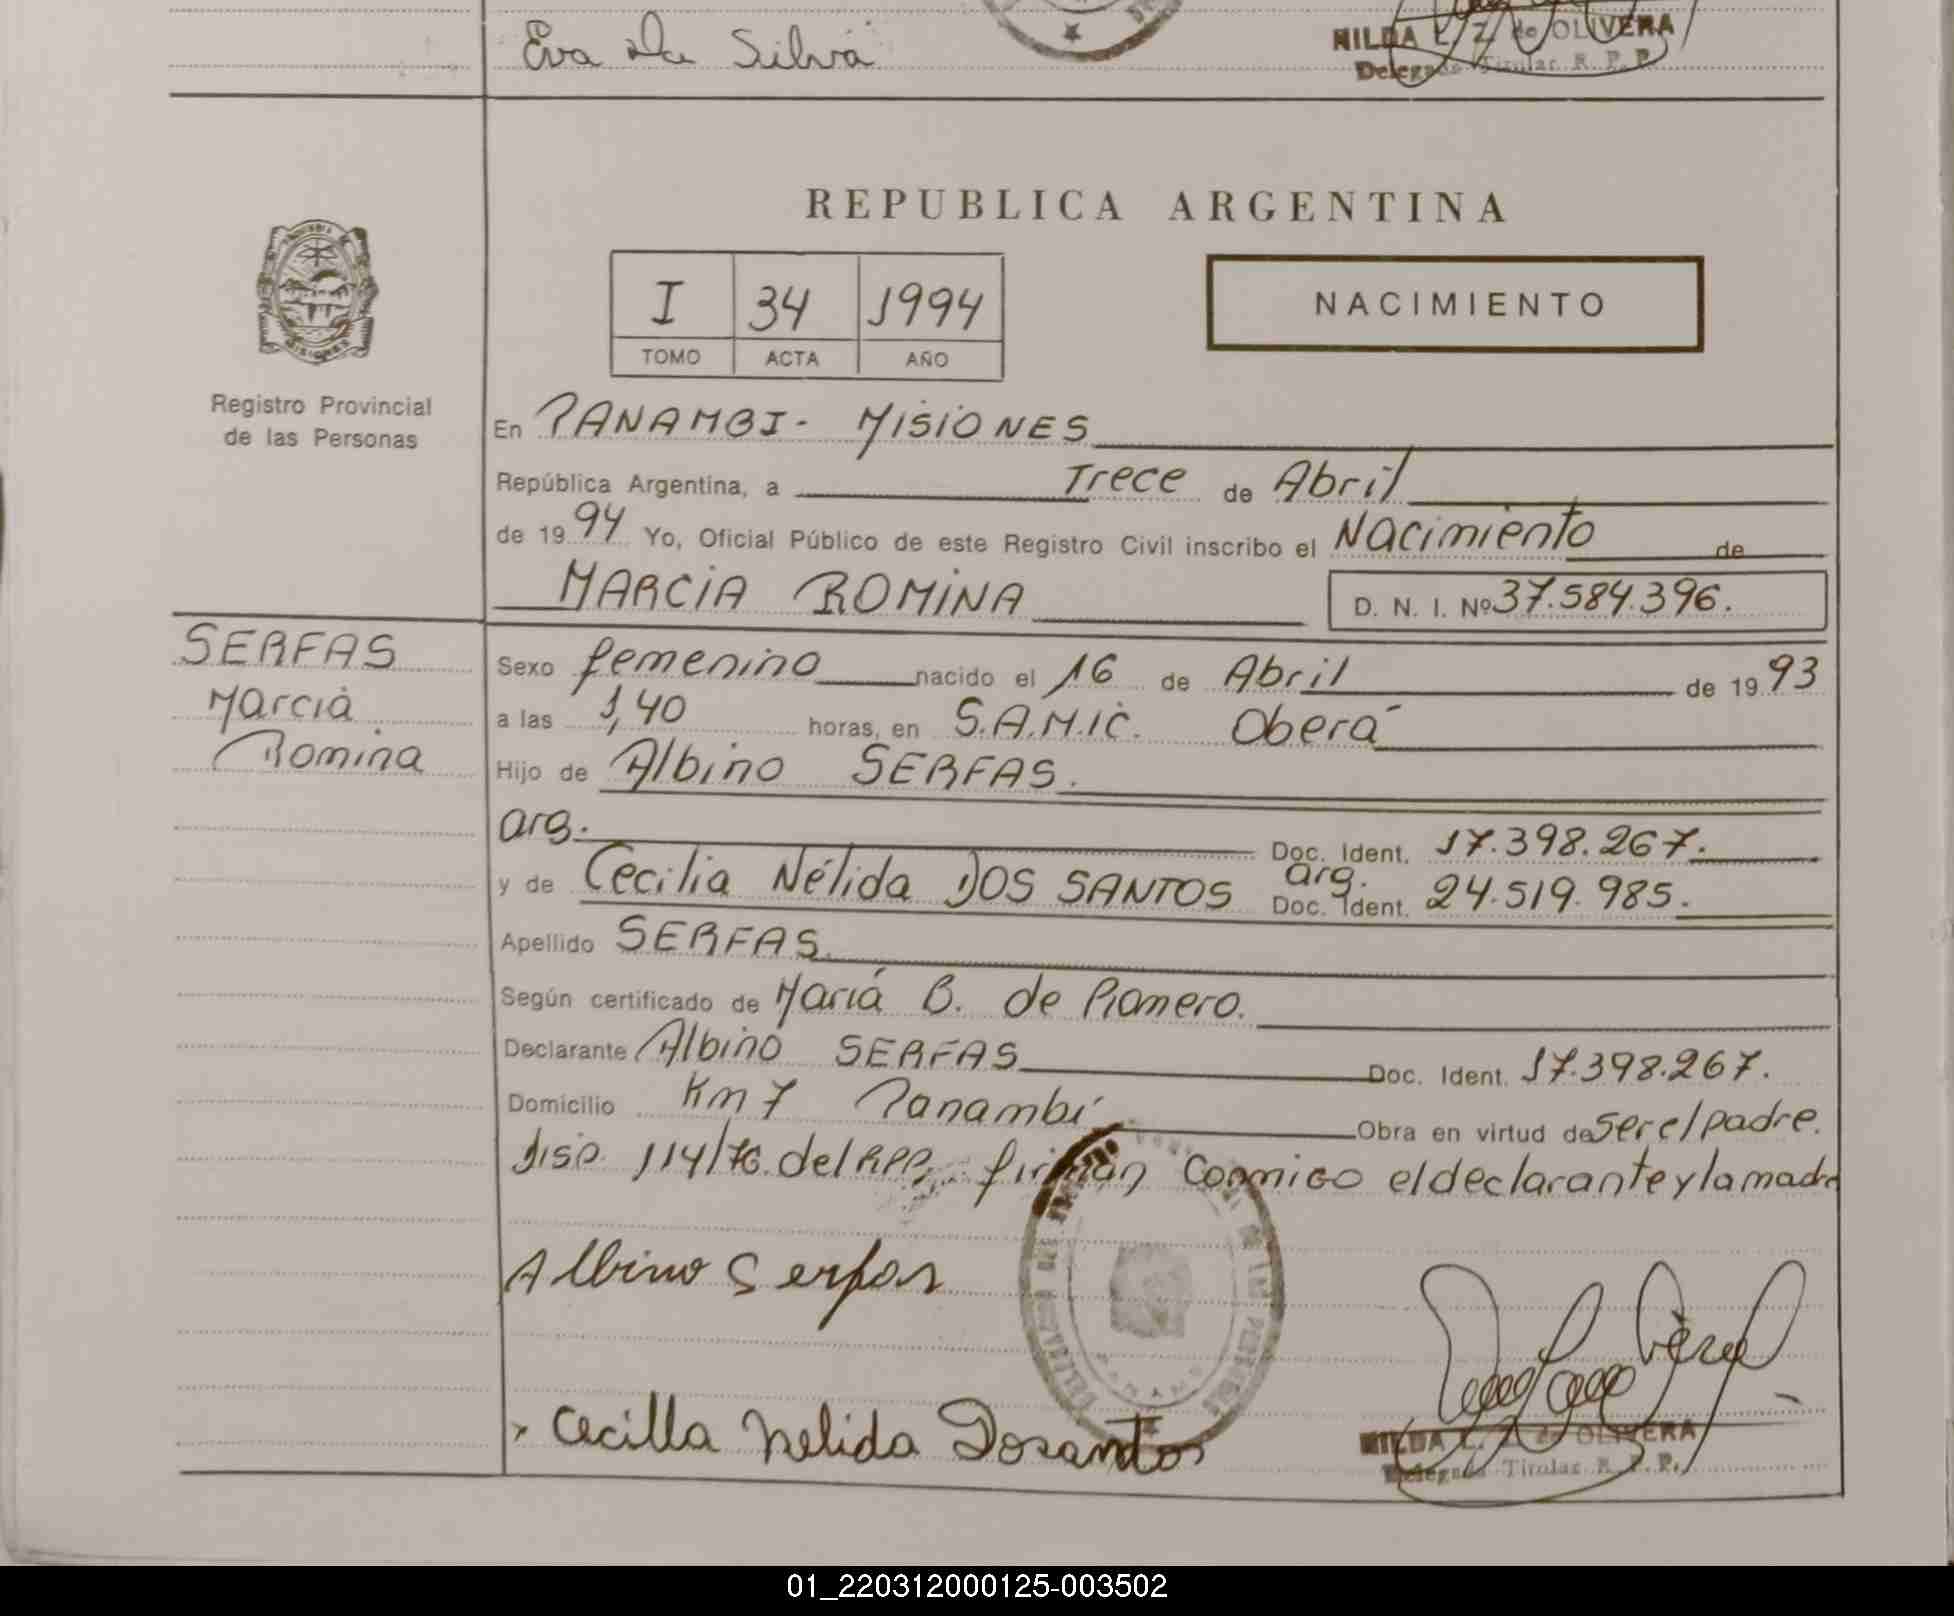 Eva Da Silva
NILDA L. Z. de OLIVERA
Delegado Titular R. P. P.
REPUBLICA ARGENTINA
I 34 1994
TOMO ACTA AÑO
NACIMIENTO
Registro Provincial
de las Personas
En PANAMBI - MISIONES
República Argentina, a Trece de Abril
de 1994 Yo, Oficial Público de este Registro Civil inscribo el Nacimiento de
MARCIA ROMINA
D. N. I. Nº 37.584.396.
SERFAS
Marcia
Romina
Sexo femenino nacido el 16 de Abril de 1993
a las 1,40 horas, en S.A.M.IC. Oberá
Hijo de Albino SERFAS.
arg. Doc. Ident. 17.398.267.
y de Cecilia Nélida DOS SANTOS arg. Doc. Ident. 24.519.985.
Apellido SERFAS.
Según certificado de María B. de Romero.
Declarante Albino SERFAS Doc. Ident. 17.398.267.
Domicilio Km 7 Panambí Obra en virtud de ser el padre.
Disp. 114/76. del RPP. firman Conmigo el declarante y la madre
Albino Serfas
Cecilla Nelida Dosantos
NILDA L. Z. de OLIVERA
Delegado Titular R. P. P.
01_220312000125-003502